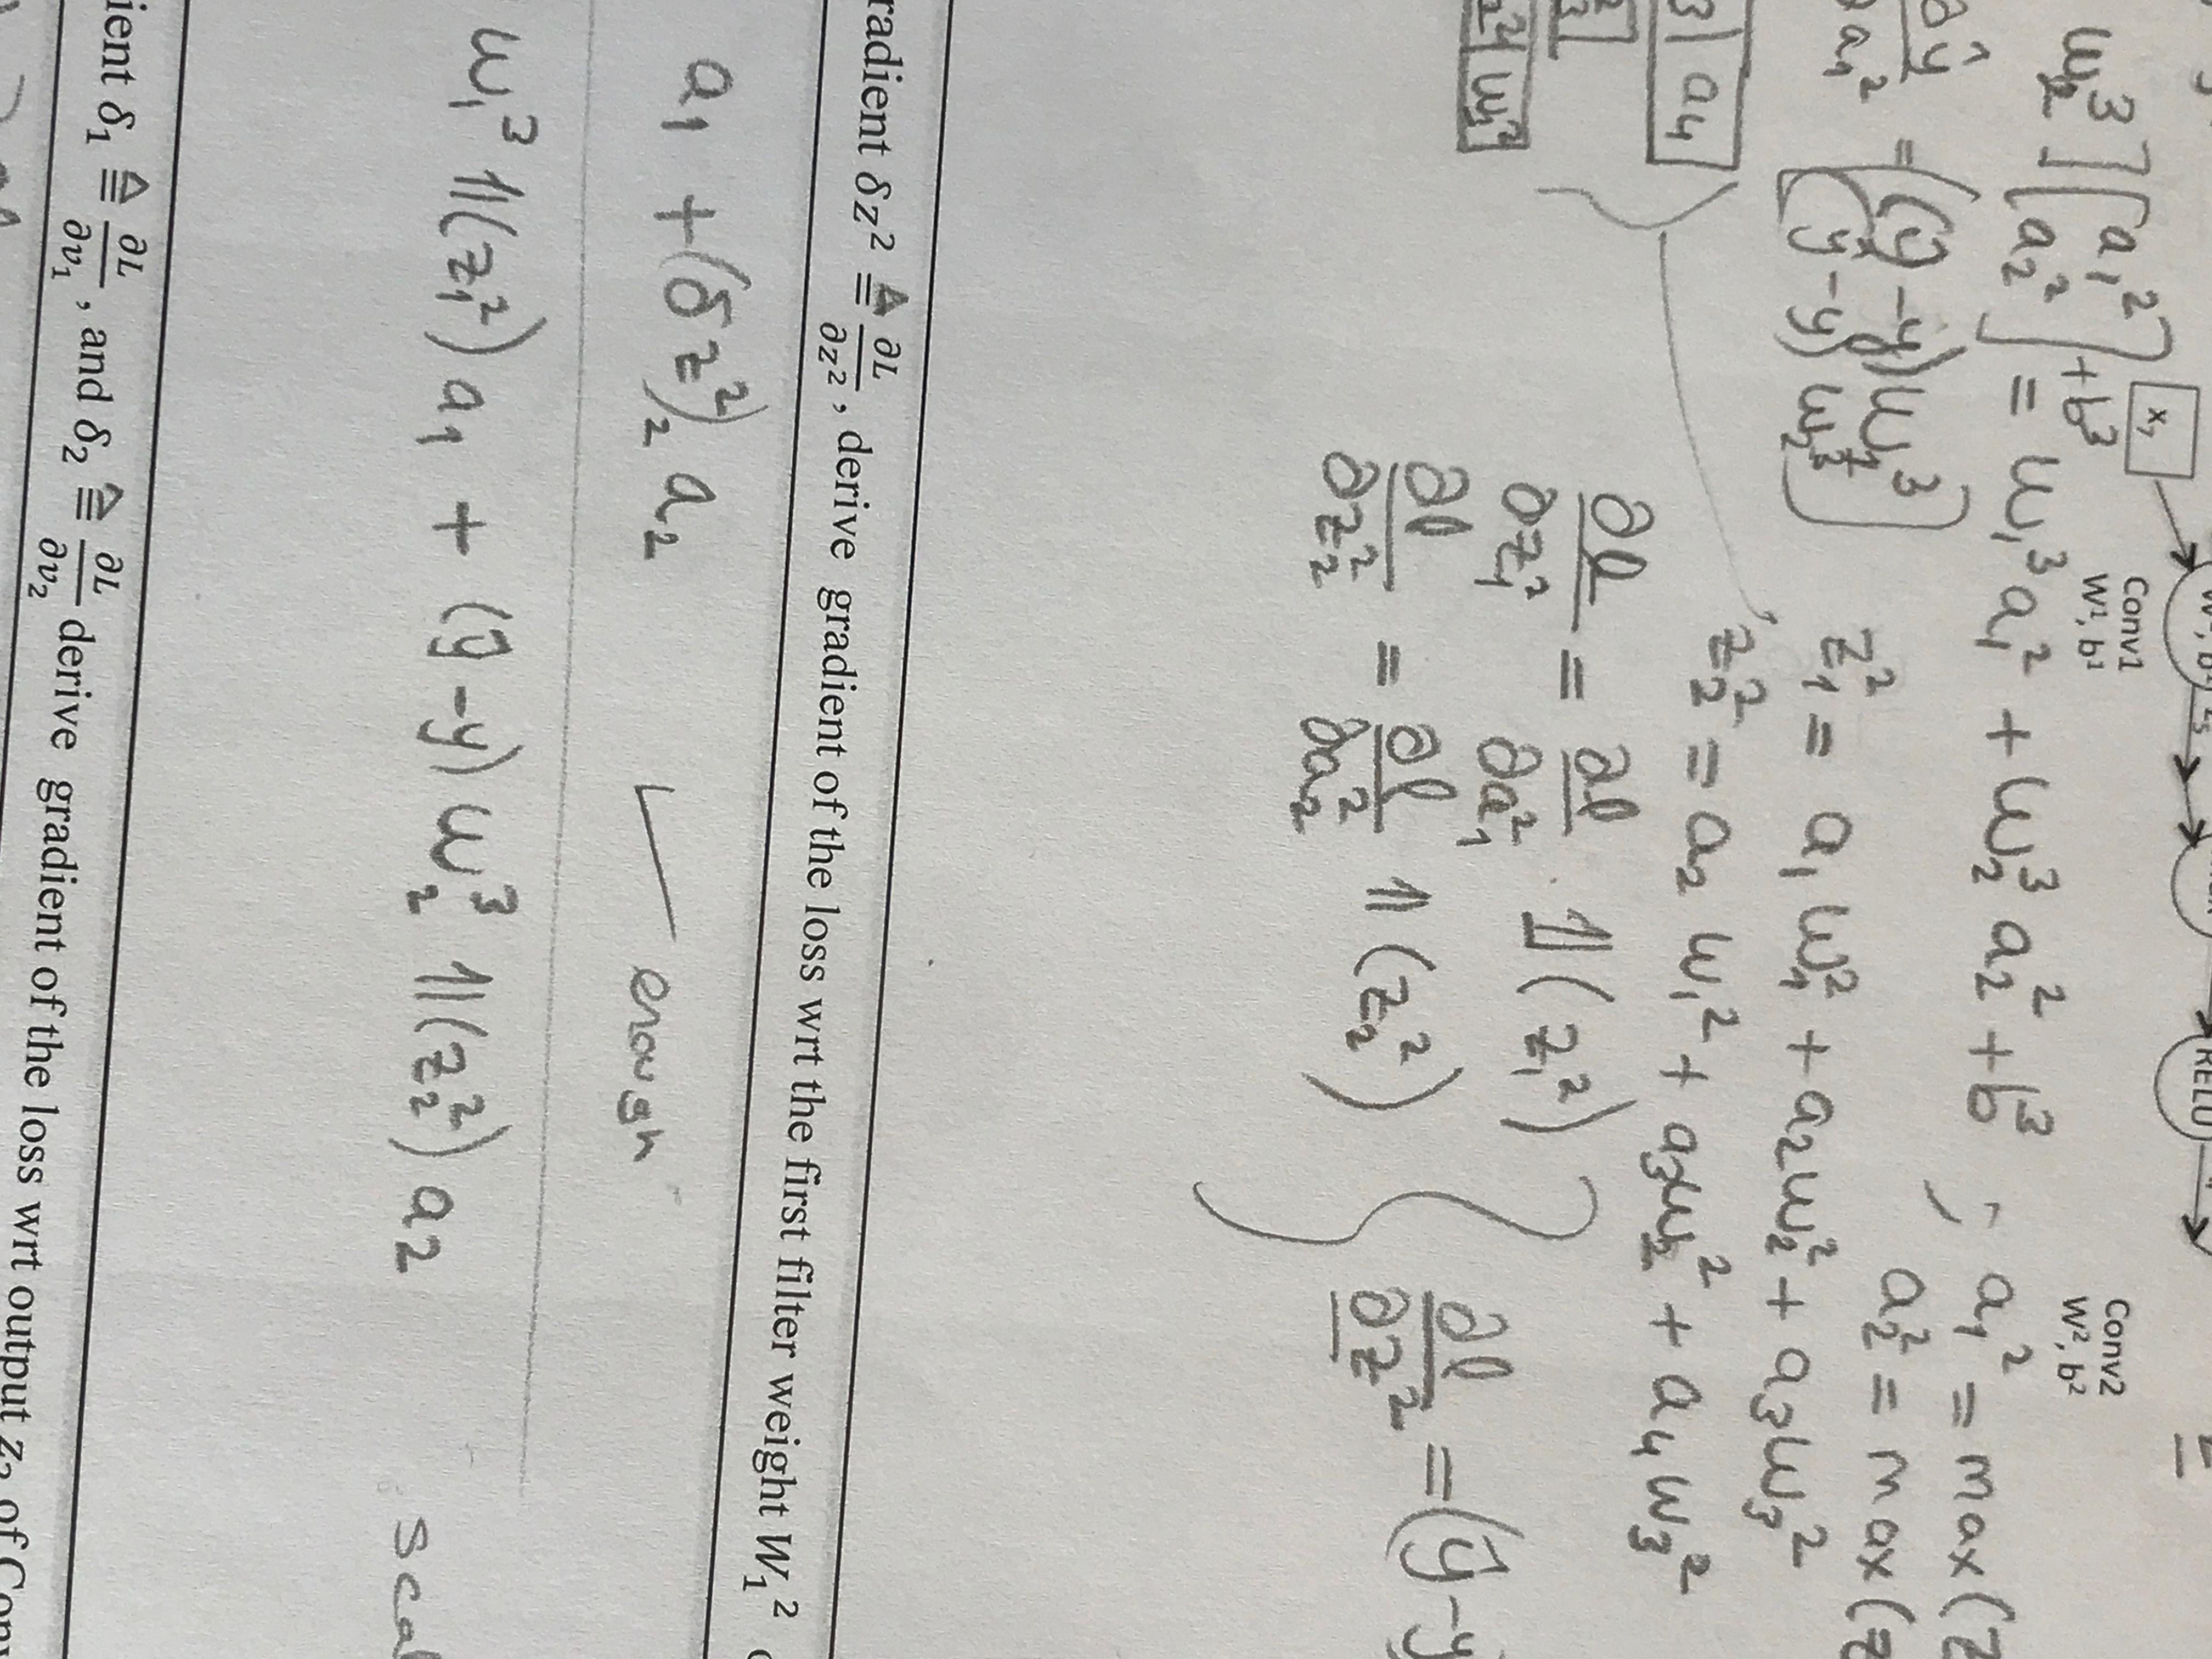 x,
W¹, b¹
RELU
Conv1
W¹, b¹
Conv2
W², b²
w₂³] [a₁² a₂²] + b³ = w₁³a₁² + w₂³a₂² + b³ , a₁² = max(z
a₂² = max(z
∂ŷ
∂a₁² = [(ŷ-y)w₁³
(ŷ-y)w₂³]
z₁² = a₁w₁² + a₂w₂² + a₃w₃²
3 | a₄
z₂² = a₂w₁² + a₃w₂² + a₄w₃²
∂l/∂z₁² = ∂l/∂a₁² · 𝟙(z₁²)
∂l/∂z₂² = ∂l/∂a₂² 𝟙(z₂²)
∂l/∂z² = (ŷ-y
radient δz² ≜ ∂L/∂z², derive gradient of the loss wrt the first filter weight W₁²
a₁ + (δz²)₂ a₂
enough
w₁³ 𝟙(z₁²) a₁ + (ŷ-y) w₂³ 𝟙(z₂²) a₂
scal
ient δ₁ ≜ ∂L/∂v₁, and δ₂ ≜ ∂L/∂v₂ derive gradient of the loss wrt output z₂ of Conv